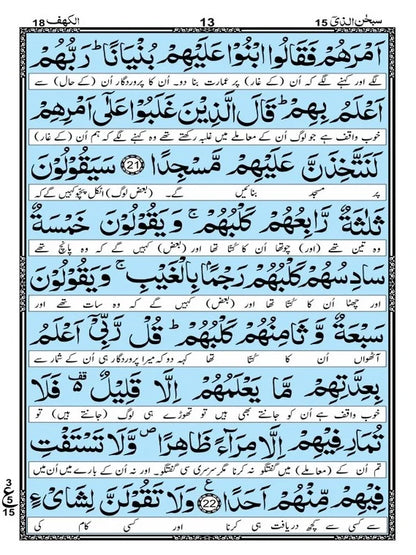 سبحٰن الذیٓ 15
13
الکهف 18
اَمْرَهُمْ فَقَالُوا ابْنُوْا عَلَیْهِمْ بُنْیَانًاؕ رَبُّهُمْ
لگے اور کہنے لگے کہ اُن (کے غار) پر عمارت بنا دو۔ اُن کا پروردگار اُن (کے حال) سے
اَعْلَمُ بِهِمْؕ قَالَ الَّذِیْنَ غَلَبُوْا عَلٰۤی اَمْرِهِمْ
خوب واقف ہے جو لوگ اُن کے معاملے میں غلبہ رکھتے تھے وہ کہنے لگے کہ ہم اُن (کے غار)
لَنَتَّخِذَنَّ عَلَیْهِمْ مَّسْجِدًا ﴿21﴾ سَیَقُوْلُوْنَ
پر مسجد بنائیں گے۔ (بعض لوگ) اٹکل پچو کہیں گے کہ
ثَلٰثَةٌ رَّابِعُهُمْ كَلْبُهُمْۚ وَیَقُوْلُوْنَ خَمْسَةٌ
وہ تین تھے (اور) چوتھا اُن کا کتّا تھا اور (بعض) کہیں گے کہ وہ پانچ تھے
سَادِسُهُمْ كَلْبُهُمْ رَجْمًۢا بِالْغَیْبِۚ وَیَقُوْلُوْنَ
اور چھٹا اُن کا کتّا تھا اور (بعض) کہیں گے کہ وہ سات تھے اور
سَبْعَةٌ وَّثَامِنُهُمْ كَلْبُهُمْؕ قُلْ رَّبِّیْۤ اَعْلَمُ
آٹھواں اُن کا کتّا تھا کہہ دو کہ میرا پروردگار ہی اُن کے شمار سے
بِعِدَّتِهِمْ مَّا یَعْلَمُهُمْ اِلَّا قَلِیْلٌ۬ فَلَا
خوب واقف ہے اُن کو جانتے بھی ہیں تو تھوڑے ہی لوگ (جانتے ہیں) تو
تُمَارِ فِیْهِمْ اِلَّا مِرَآءً ظَاهِرًا۪ وَّلَا تَسْتَفْتِ
تم اُن کے (معاملے) میں گفتگو نہ کرنا مگر سرسری سی گفتگو۔ اور نہ اُن کے بارے میں اُن میں
فِیْهِمْ مِّنْهُمْ اَحَدًا ﴿22﴾ ع وَلَا تَقُوْلَنَّ لِشَایْءٍ
سے کسی سے کچھ دریافت ہی کرنا اور کسی کام کی
3
ع
5
15